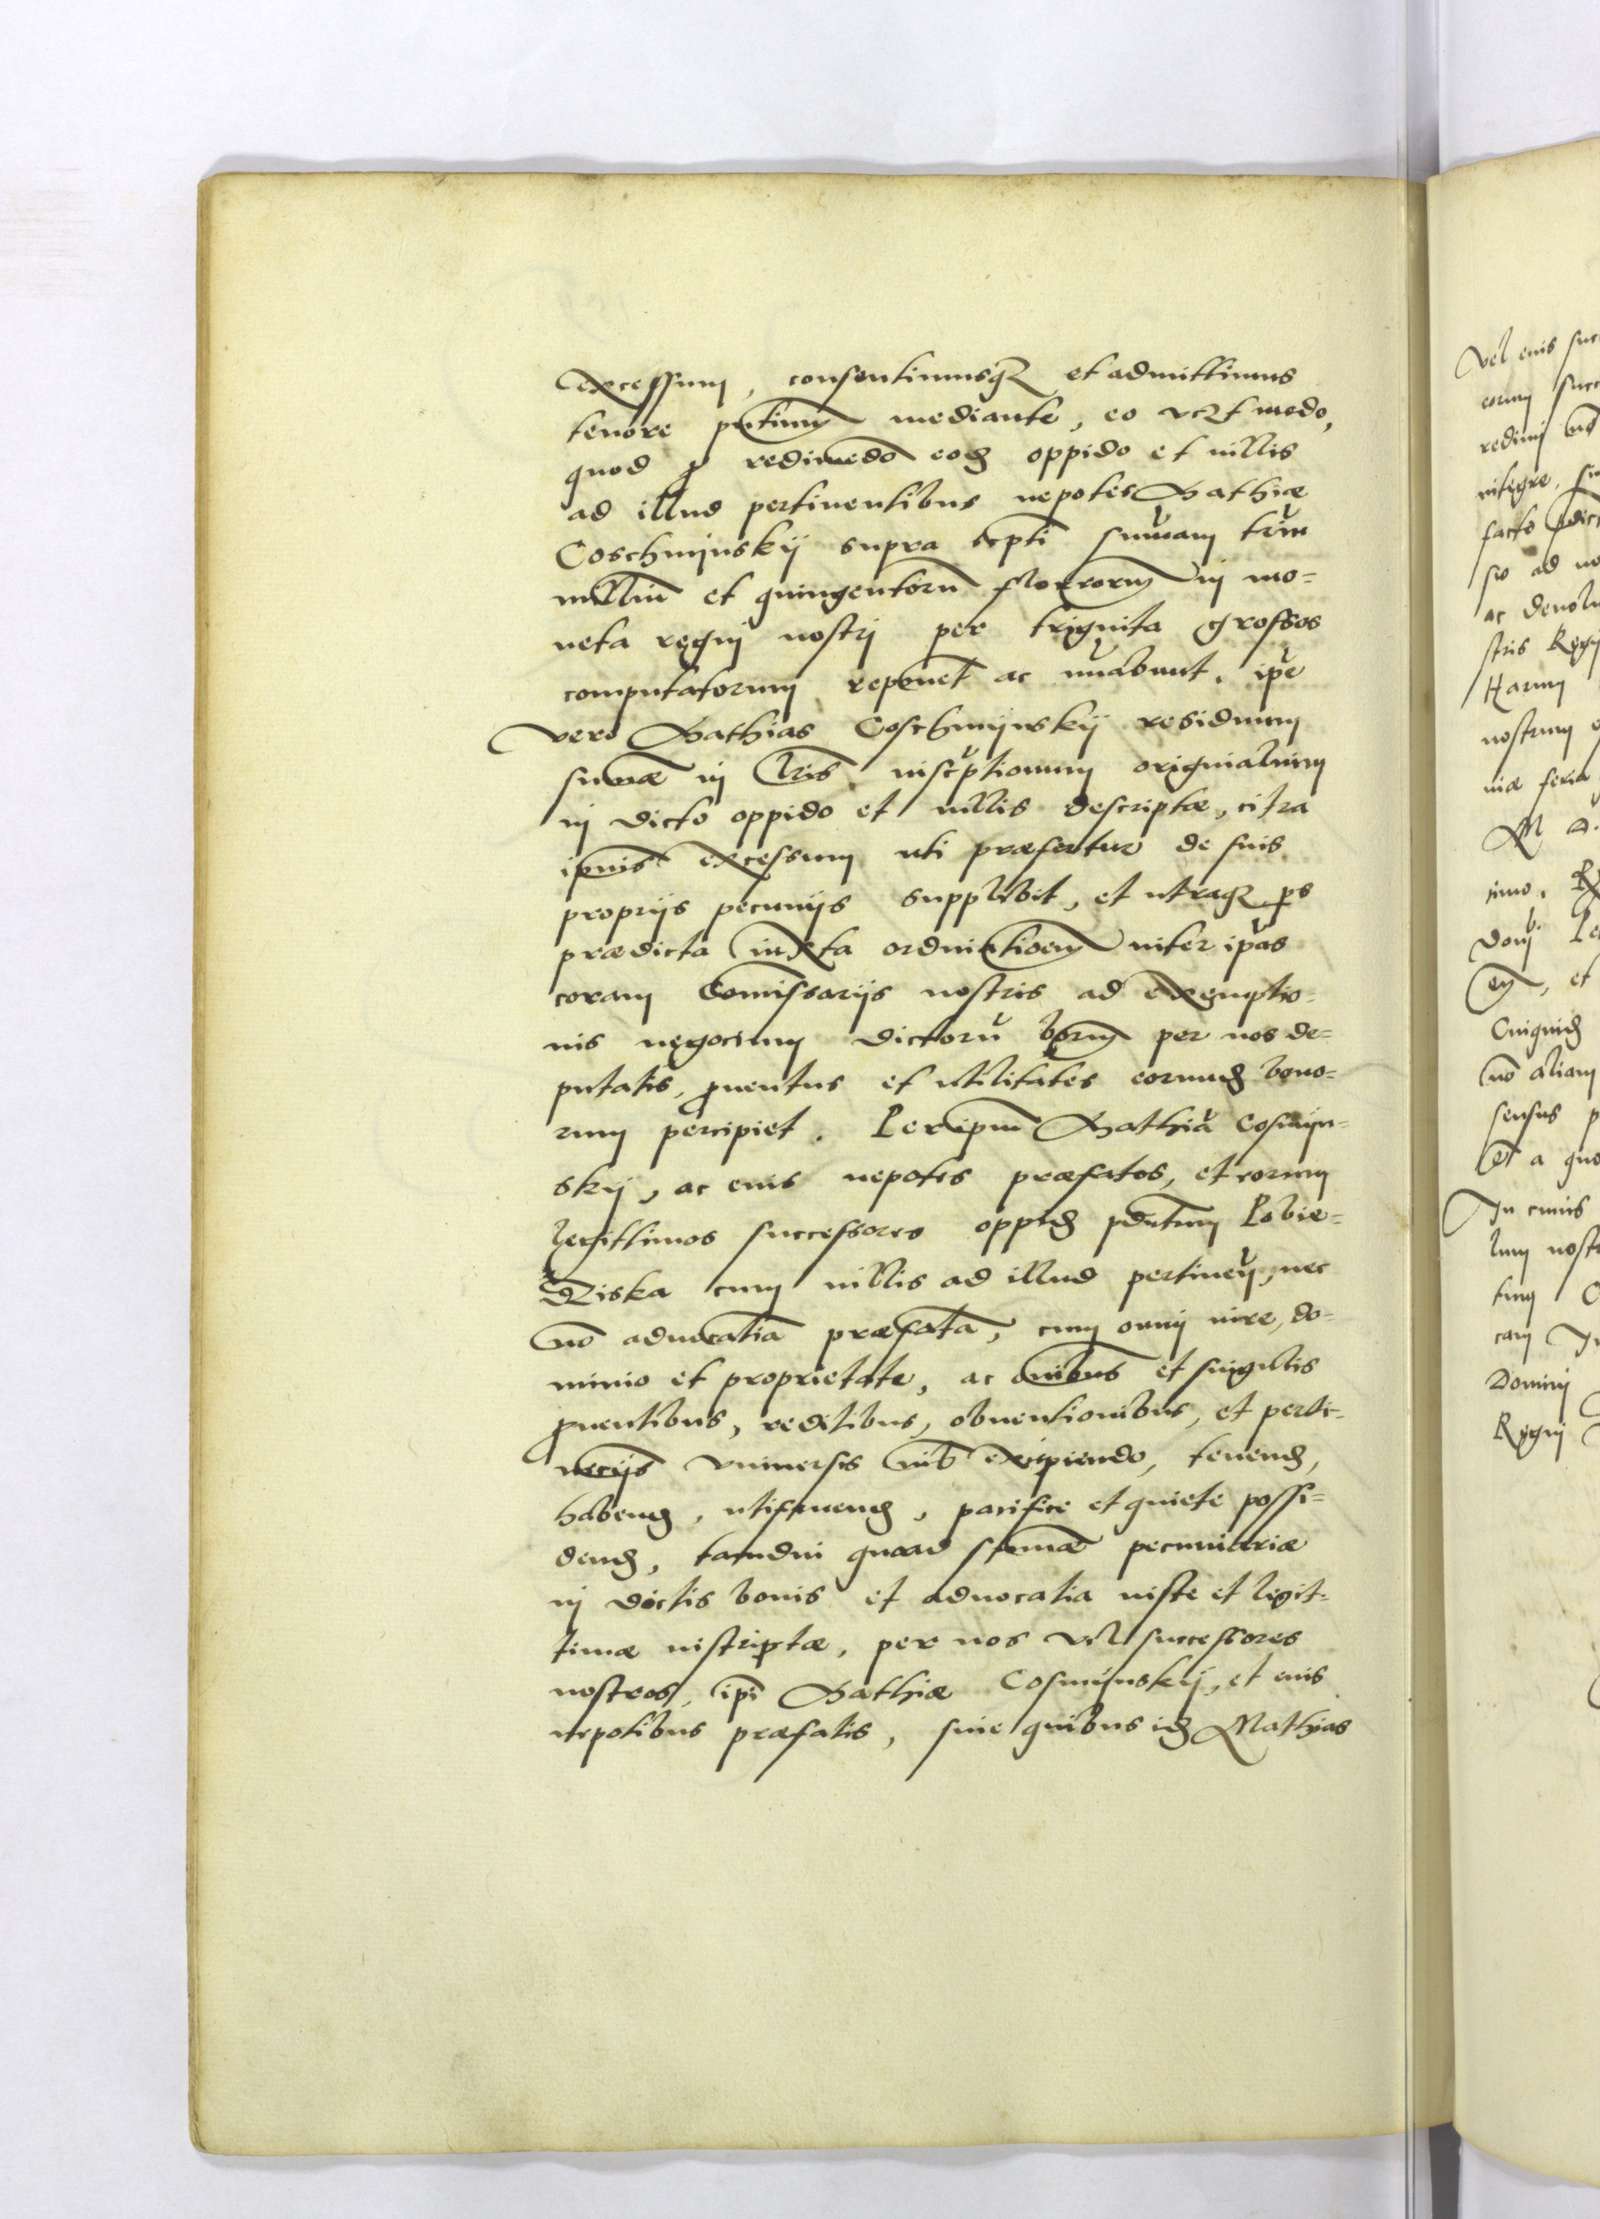 excessum, consentimusq3 et admittimus
tenore pñtium mediante, eo v3 modo,
quod p redimedo eod oppido et villis
ad illud pertinentibus nepotes Mathiæ
Coschmijnskij supra scpti sumam triu
milliu et quingentoru florenorum in mo=
neta regni nostri per triginta grossos
computatorum reponet ac nuabunt, ipe
vero Mathias Coschmijnskij residuum
sumæ in lris inscptionum originalium
in dicto oppido et villis descriptæ, citra
ipius excessum uti præfertur de suis
proprijs pecunijs supplebit, et utraq3 ps
prædicta iuxta ordinatioem inter ipas
coram Comissarijs nostris ad exemptio=
nis negocium dictoru bonorum per nos de=
putatis, puentus et utilitates eorund bono=
rum percipiet. Per ipm Mathia Cosmijn=
skij, ac eius nepotes præfatos, et eorum
legittimos successores oppid pdictum Lobie=
ziska cum villis ad illud pertinen, nec
no aduocatia præfata, cum omni iure, do=
minio et proprietate, ac oibus et singulis
puentibus, reditibus, obuentionibus, et perti=
necijs vniuersis nil excipiendo, tenend,
habend, utifruend, pacifice et quiete possi=
dend, tamdiu quoad sumæ pecuniariæ
in dictis bonis et aduocatia iuste et legit=
timæ inscriptæ, per nos vel successores
nostros, ipi Mathiæ Cosmijnskij, et eius
nepotibus præfatis, siue quibus id Mathias
vel eius suc
eorum succ
redimi
integre, su
facto
sio ad no
ac deuolu
stris Regij
Harum
nostrum
niæ feria
M D.
imo. R
Domi
et
Cuiquid
no aliam
sensus p
a quo
In cuius
lum nost
tum C
cam In
Domini
Regni